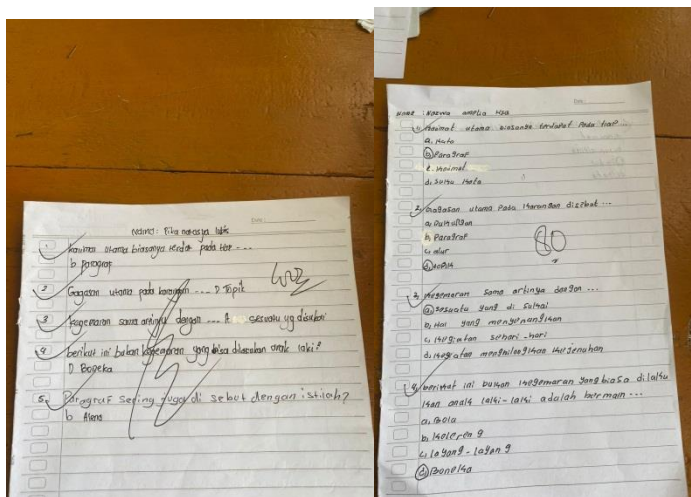 Nama: Fika natasya lubis
1. kalimat utama biasanya terdapat pada tiap ....
b. paragraf
2 Gagasan utama pada karangan .... D Topik
100
3 kegemaran sama artinya dengan .... A sesuatu yg disukai
4 berikut ini bukan kegemaran yang bisa dilakukan anak laki?
D Boneka
5. Paragraf sering juga di sebut dengan istilah?
b Alenia
Nama : Nazwa amelia
1. kalimat utama biasanya terdapat pada tiap ...
a. kata
b. Paragraf
c. kalimat
d. suku kata
2. Gagasan utama Pada karangan disebut ...
b. Paragraf
80
c. alur
d. topik
3. kegemaran sama artinya dengan ...
a. sesuatu yang di sukai
b. Hal yang menyenangkan
c. kegiatan sehari-hari
d. kegiatan menghilangkan kejenuhan
4. berikut ini bukan kegemaran yang biasa dilaku
kan anak laki-laki adalah bermain ...
a. Bola
b. kelereng
c. layang-layang
d. Boneka